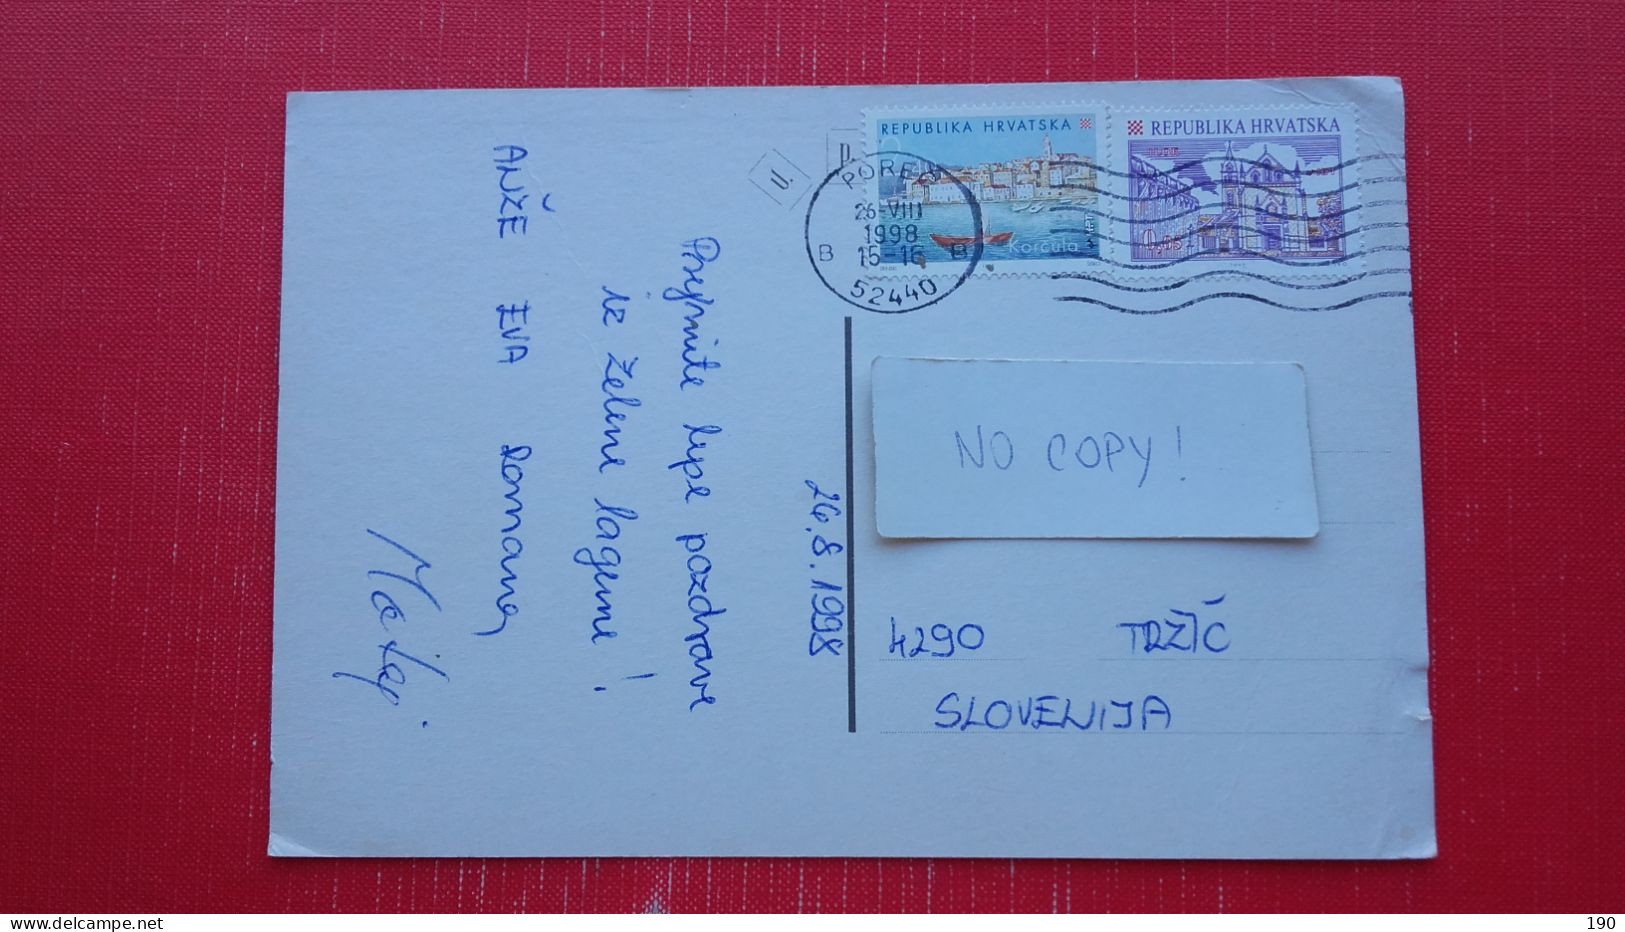 Prejmite lepe pozdrave
iz Zelene lagune!
ANŽE EVA Romana
Matej.
24.8.1998
U.
P.
REPUBLIKA HRVATSKA
Korčula
HPT
REPUBLIKA HRVATSKA
0,05
POREČ
26-VIII
1998
B 15-16 B
52440
NO COPY!
4290 TRŽIČ
SLOVENIJA
delcampe.net
nabiralec
190